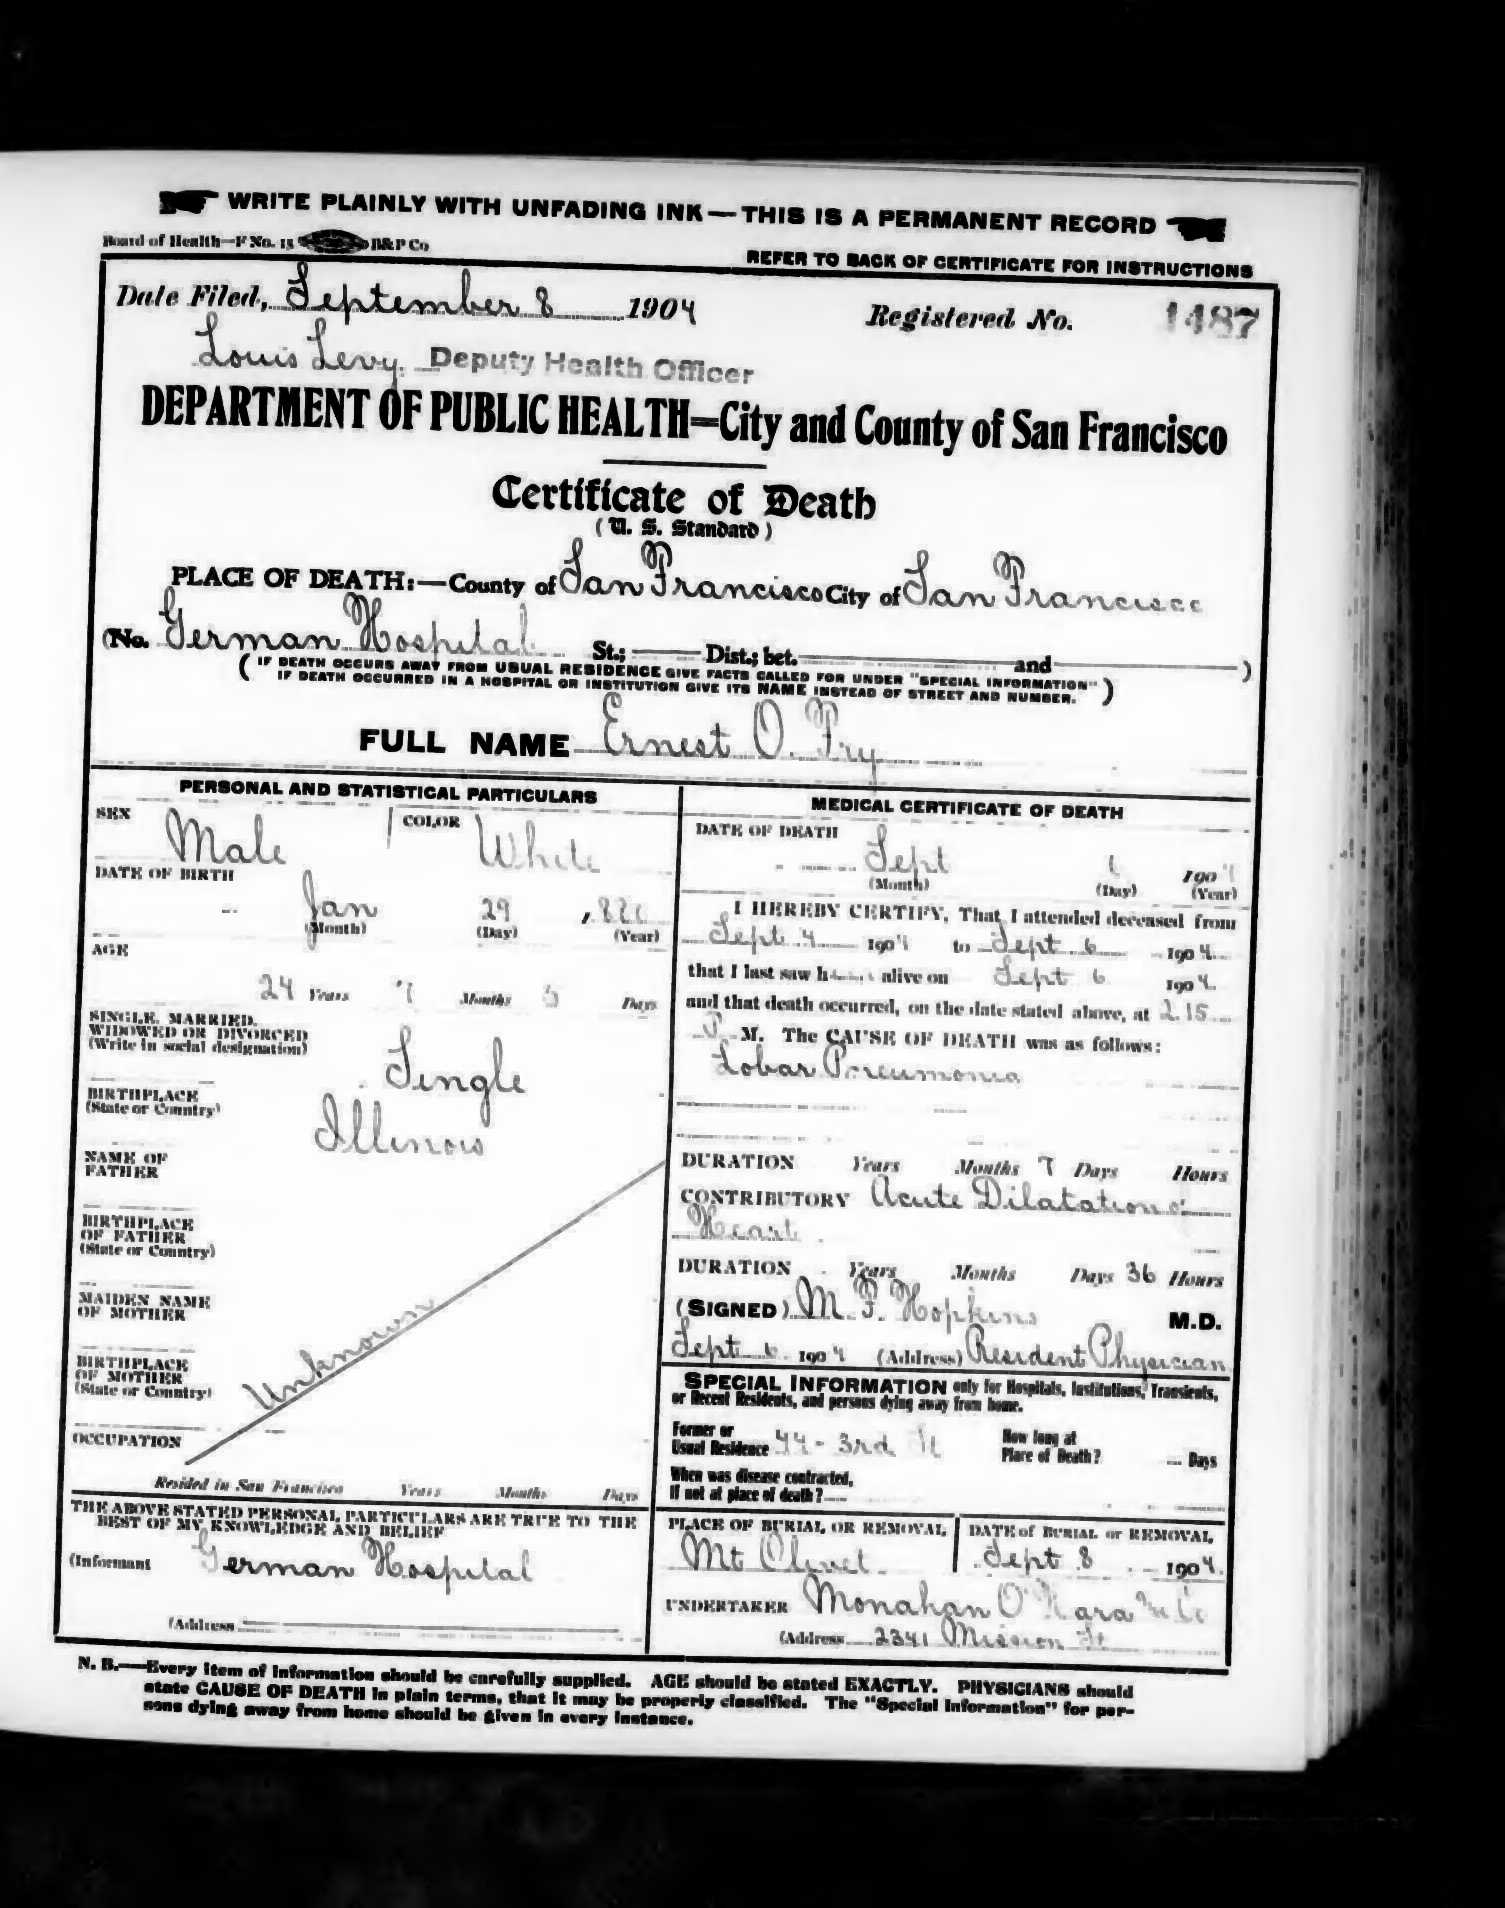 WRITE PLAINLY WITH UNFADING INK—THIS IS A PERMANENT RECORD
Board of Health—F No. 15 B&P Co
REFER TO BACK OF CERTIFICATE FOR INSTRUCTIONS
Date Filed, September 8 1904 Registered No. 1487
Louis Levy. Deputy Health Officer
DEPARTMENT OF PUBLIC HEALTH—City and County of San Francisco
Certificate of Death
(U. S. Standard)
PLACE OF DEATH:—County of San Francisco City of San Francisco
(No. German Hospital St.; Dist.; bet. and )
(IF DEATH OCCURS AWAY FROM USUAL RESIDENCE GIVE FACTS CALLED FOR UNDER "SPECIAL INFORMATION"
IF DEATH OCCURRED IN A HOSPITAL OR INSTITUTION GIVE ITS NAME INSTEAD OF STREET AND NUMBER.)
FULL NAME Ernest O. Fry
PERSONAL AND STATISTICAL PARTICULARS
SEX Male COLOR White
DATE OF BIRTH
Jan 29
(Month) (Day) (Year)
AGE
24 Years 7 Months Days
SINGLE, MARRIED,
WIDOWED OR DIVORCED
(Write in social designation)
Single
BIRTHPLACE
(State or Country)
Illinois
NAME OF
FATHER
BIRTHPLACE
OF FATHER
(State or Country)
MAIDEN NAME
OF MOTHER
BIRTHPLACE
OF MOTHER
(State or Country)
Unknown
OCCUPATION
Resided in San Francisco Years Months Days
THE ABOVE STATED PERSONAL PARTICULARS ARE TRUE TO THE
BEST OF MY KNOWLEDGE AND BELIEF
(Informant German Hospital
(Address
MEDICAL CERTIFICATE OF DEATH
DATE OF DEATH
Sept 6 1904
(Month) (Day) (Year)
I HEREBY CERTIFY, That I attended deceased from
Sept 4 1904 to Sept 6 1904
that I last saw h alive on Sept 6 1904
and that death occurred, on the date stated above, at 2.15
P M. The CAUSE OF DEATH was as follows:
Lobar Pneumonia
DURATION Years Months 7 Days Hours
CONTRIBUTORY Acute Dilatation of
Heart
DURATION Years Months Days 36 Hours
(SIGNED) M. F. Hopkins M.D.
Sept 6 1904 (Address) Resident Physician
SPECIAL INFORMATION only for Hospitals, Institutions, Transients,
or Recent Residents, and persons dying away from home.
Former or
Usual Residence 44 - 3rd St
How long at
Place of Death? Days
When was disease contracted,
If not at place of death?
PLACE OF BURIAL OR REMOVAL DATE of BURIAL or REMOVAL
Mt Olivet Sept 8 1904
UNDERTAKER Monahan O'Hara & Co
(Address 2341 Mission St
N. B.—Every item of information should be carefully supplied. AGE should be stated EXACTLY. PHYSICIANS should
state CAUSE OF DEATH in plain terms, that it may be properly classified. The "Special Information" for per-
sons dying away from home should be given in every instance.